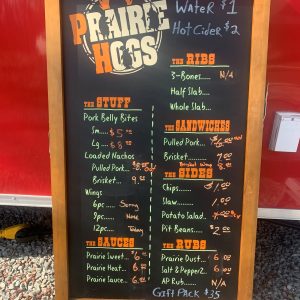 Prairie Hogs
Water $1
Hot Cider $2
The Ribs
3-Bones..... N/A
Half Slab....
Whole Slab...
The Stuff
Pork Belly Bites
Sm.... $5.00
Lg.... $8.00
Loaded Nachos
Pulled Pork...
Brisket.... 9.00
Wings
6pc..... Sorry
9pc..... None
12pc.... Today
The Sandwiches
Pulled Pork...
Brisket........ 7.00
Brisket
The Sides
Chips...... $1.00
Slaw...... 1.00
Potato Salad..
Pit Beans... $2.00
The Sauces
Prairie Sweet.. $6
Prairie Heat... 6
Prairie Sauce.. 6
The Rubs
Prairie Dust... $6
Salt & Pepper2.. 6
AP Rub...... N/A
Gift Pack $35